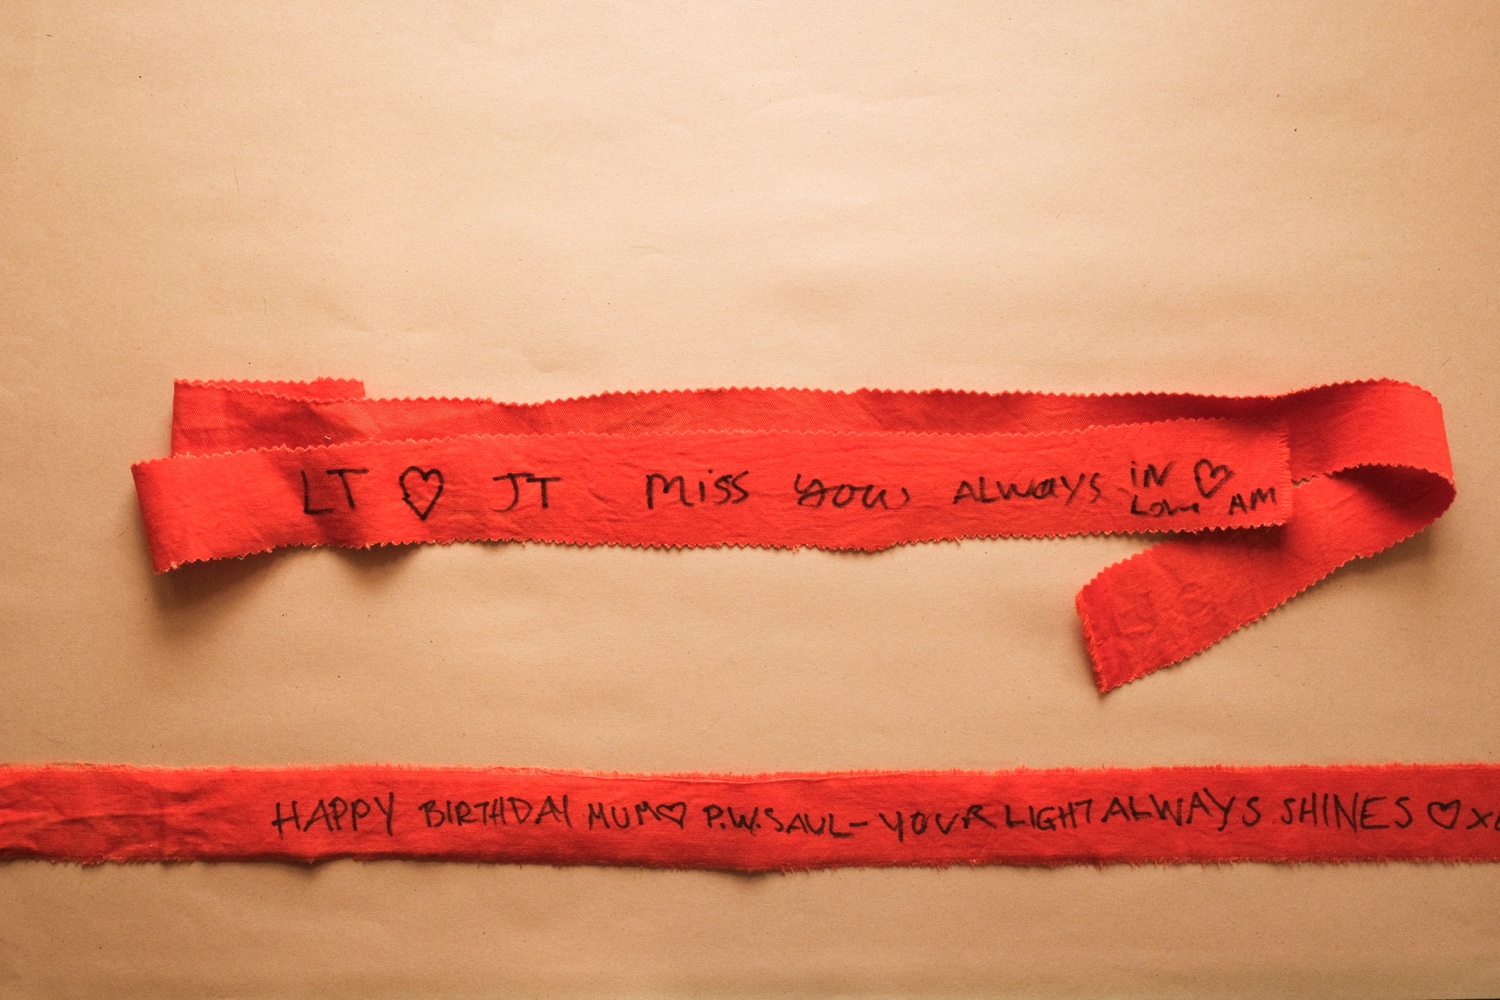 LT ♡ JT Miss you ALWAYS IN ♡
Love AM
HAPPY BIRTHDAY MUM♡ P.W.SAUL- YOUR LIGHT ALWAYS SHINES ♡ x